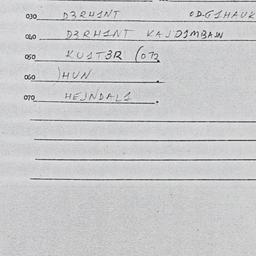 030 D3RH1NT OD.G1HAUK
040 D3RH1NT KAJD1MBAW
050 KU1T3R (072
060 )HUN
070 HEJNDAL1